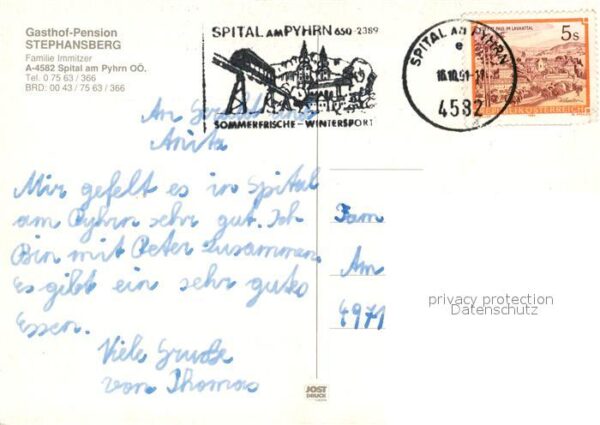 Gasthof-Pension
STEPHANSBERG
Familie Immitzer
A-4582 Spital am Pyhrn OÖ.
Tel. 0 75 63 / 366
BRD: 00 43 / 75 63 / 366
SPITAL AM PYHRN 650-2389
SOMMERFRISCHE - WINTERSPORT
SPITAL AM PYHRN
e
18.10.91-17
4582
5 S
REPUBLIK ÖSTERREICH
An
Anita
Mir gefelt es in Spital
am Pyhrn sehr gut. Ich
Bin mit Peter Zusammen.
Es gibt ein sehr gutes
Essen.
Viele Grüße
von Thomas
Fam
Am
4971
privacy protection
Datenschutz
JOST
DRUCK